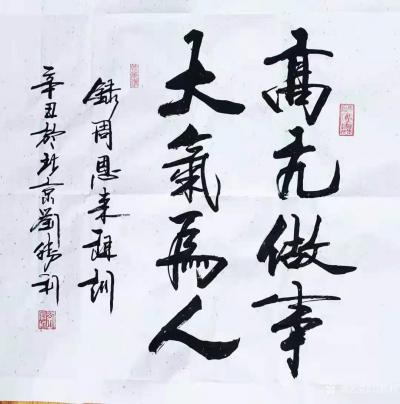 高亢做事
大氣為人
錄周恩来祖訓
辛丑於北京劉勝利